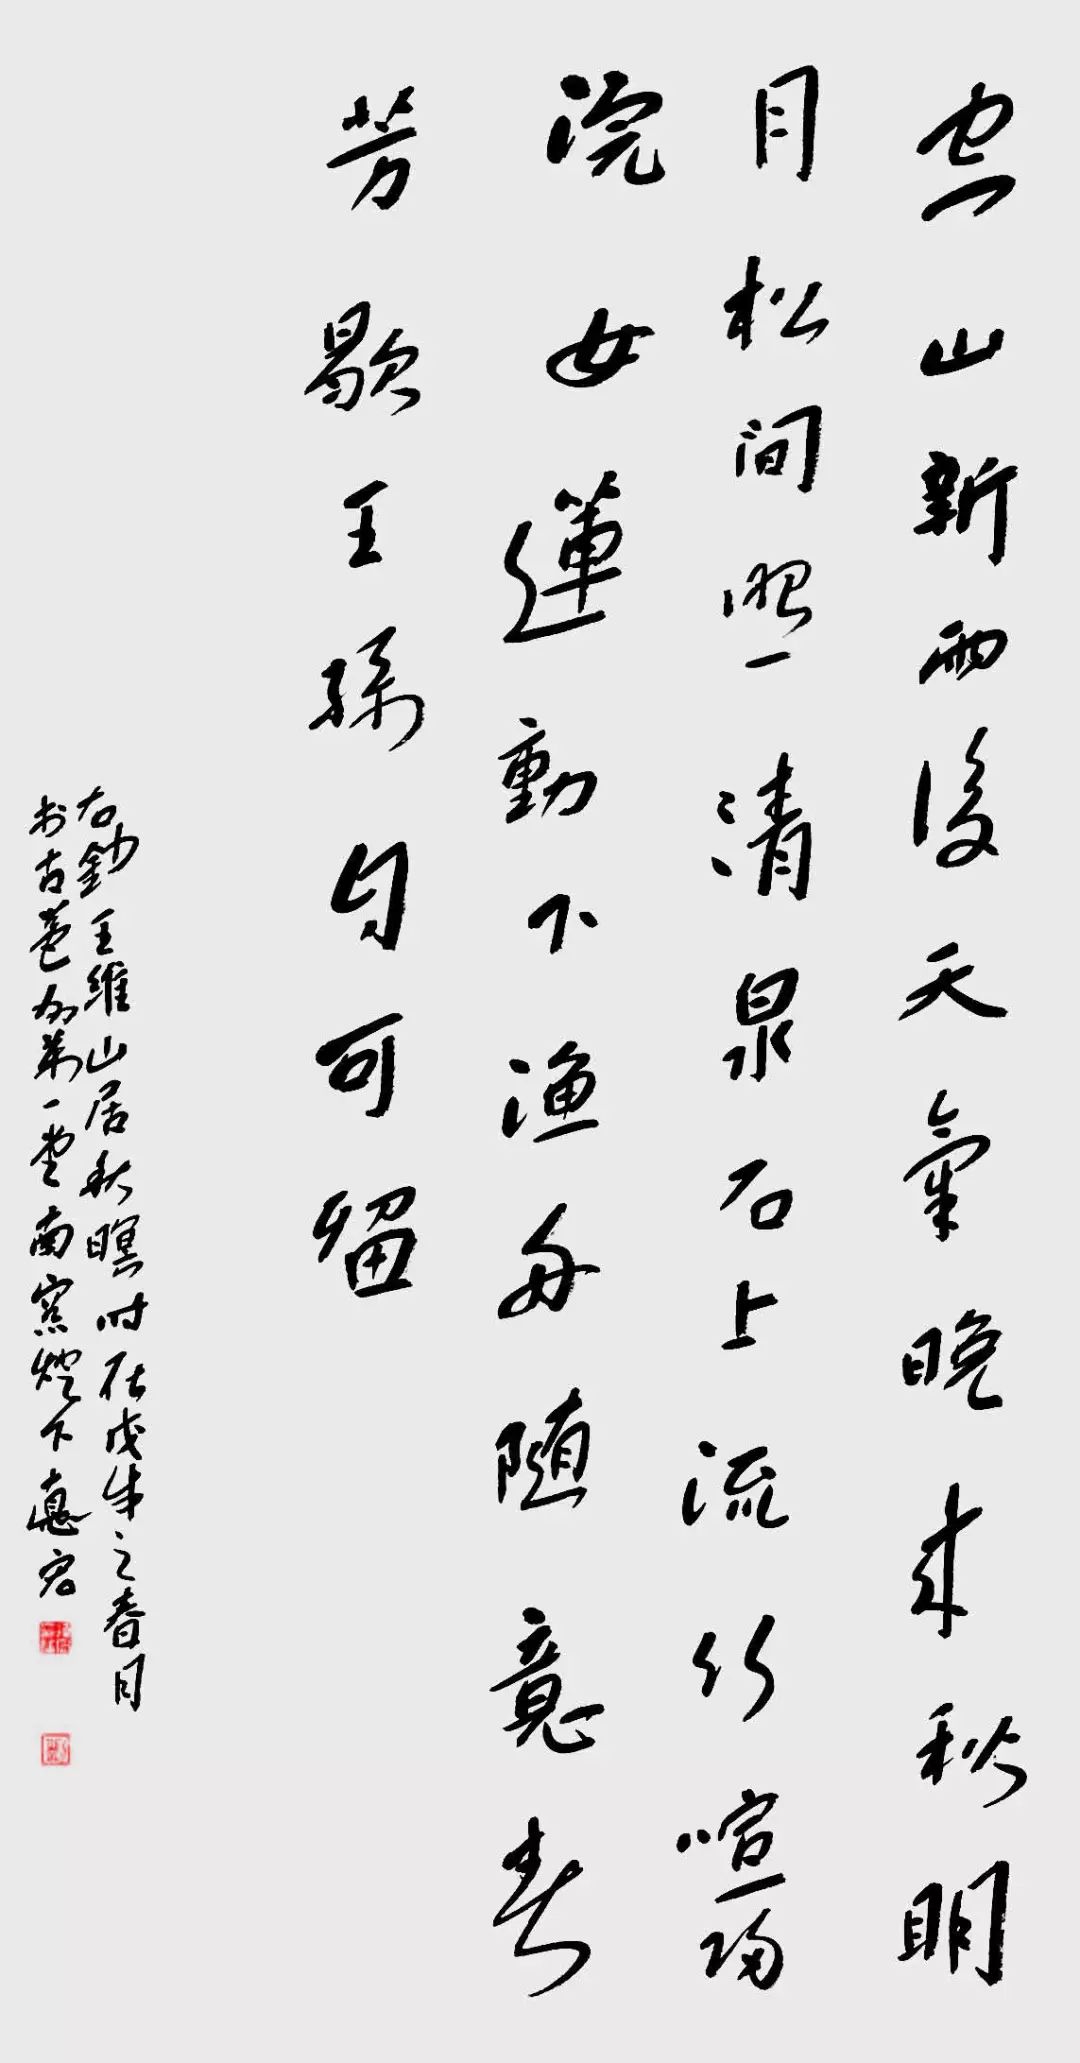 空山新雨後天氣晚來秋明
月松间照清泉石上流竹喧歸
浣女蓮動下渔舟随意春
芳歇王孫自可留
右鈔王維山居秋暝时在戊戌之春月
於古蓝田第一堂南窓燈下惠宏